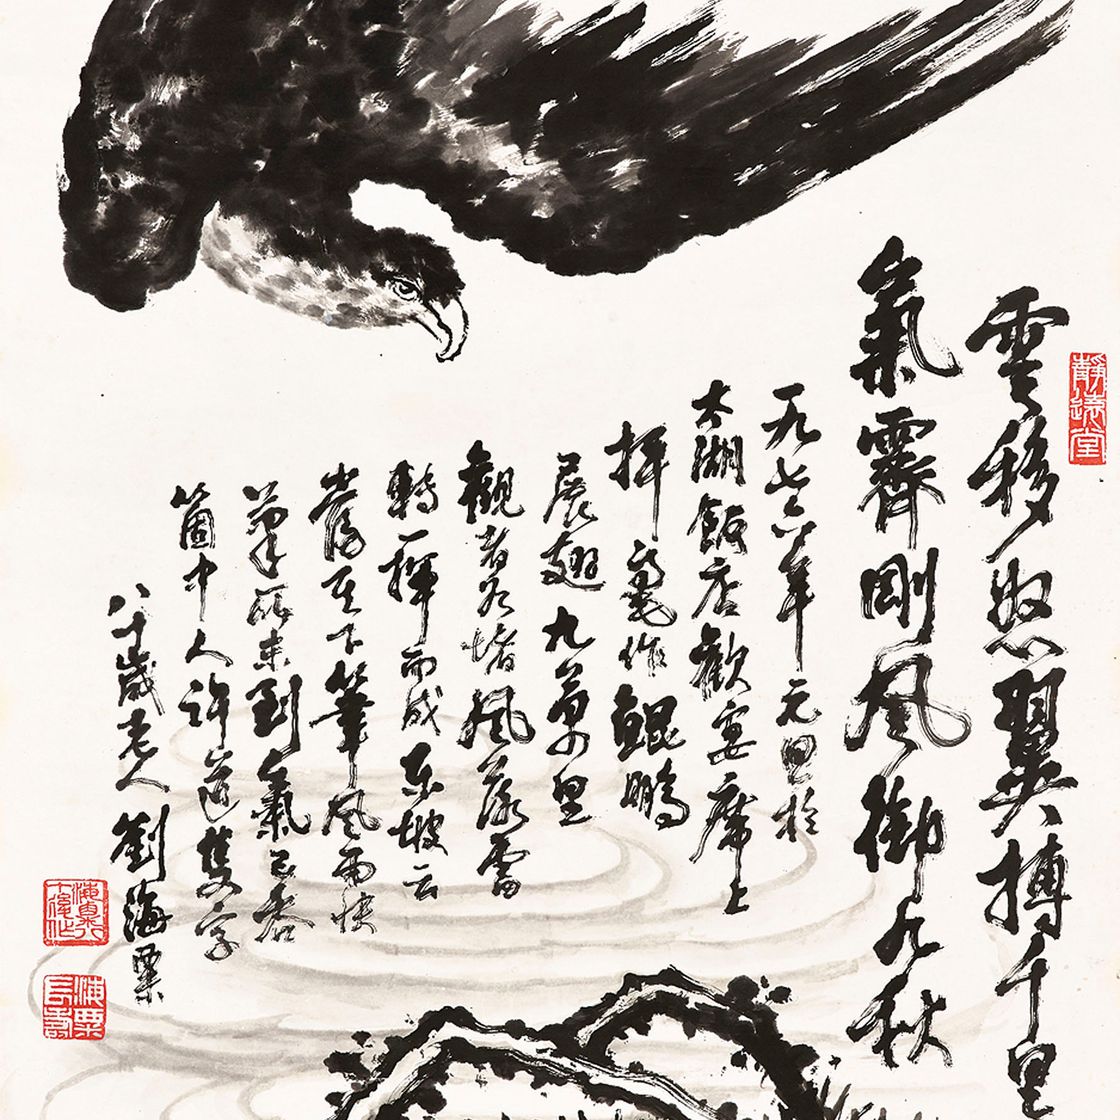 靜遠堂
雲移怒翼搏千里
氣霽剛風御九秋
一九七六年元旦於
太湖飯店歡宴席上
揮毫作鯤鵬
展翅九萬里
觀者堵風落雷
轉一揮而成東坡云
當其下筆風雨快
筆所未到氣已吞
箇中人許道隻字
八十歲老人劉海粟